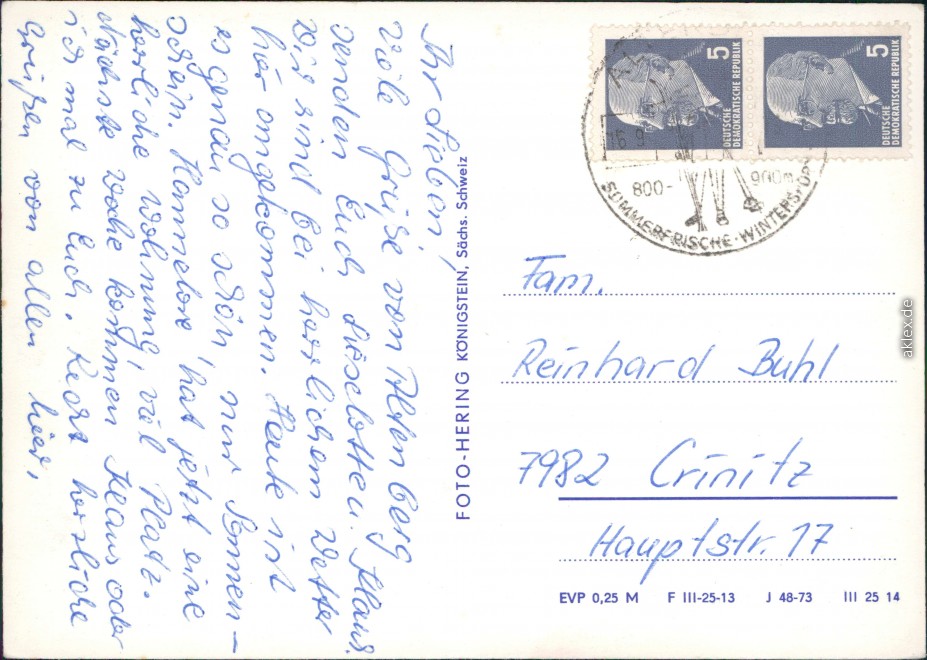 Ihr Lieben!
Viele Grüße von Altenberg
senden Euch Lieselotte u. Klaus.
Wir sind bei herrlichem Wetter
hier angekommen. Heute ist
es genau so schön, nur Sonnen-
schein. Hannelore hat jetzt eine
herrliche Wohnung, viel Platz.
Nächste Woche kommen Klaus oder
ich mal zu Euch. Recht herzliche
Grüßen von allen hier,
FOTO-HERING KÖNIGSTEIN, Sächs. Schweiz
5
DEUTSCHE
DEMOKRATISCHE REPUBLIK
5
DEUTSCHE
DEMOKRATISCHE REPUBLIK
800-
900m
SOMMERFRISCHE · WINTERSPO
Fam.
Reinhard Buhl
7982 Crinitz
Hauptstr. 17
EVP 0,25 M F III-25-13 J 48-73 III 25 14
aklex.de